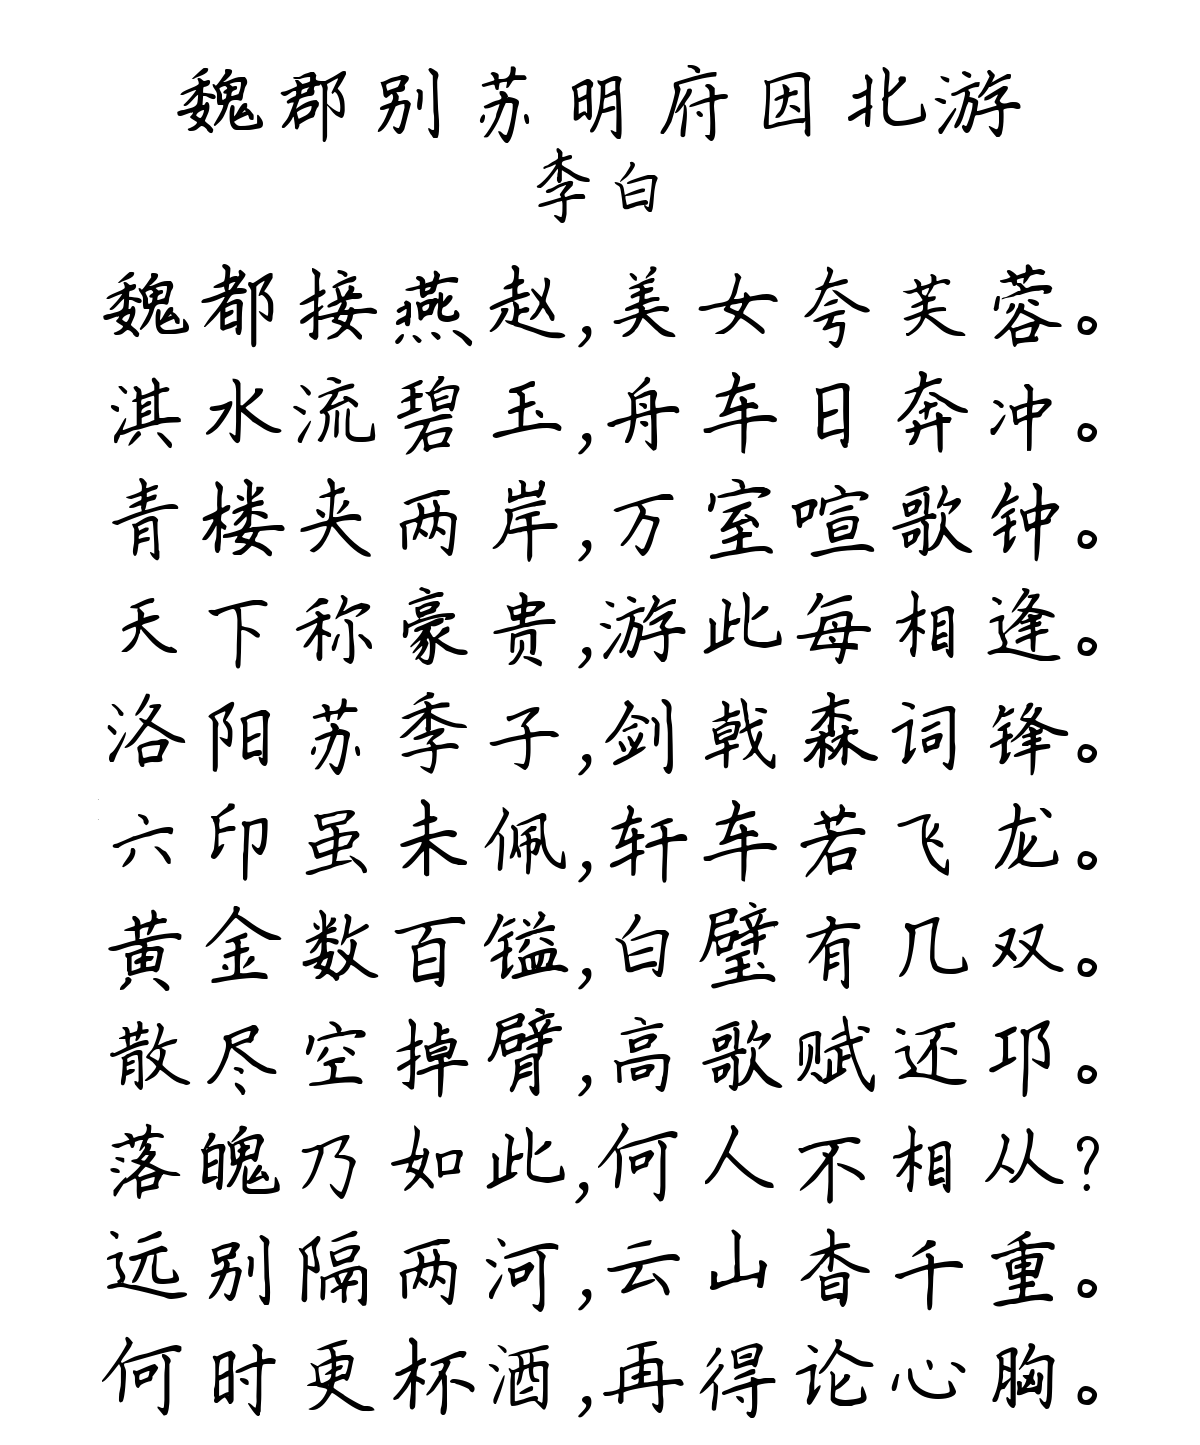 魏郡别苏明府因北游
李白
魏都接燕赵,美女夸芙蓉。
淇水流碧玉,舟车日奔冲。
青楼夹两岸,万室喧歌钟。
天下称豪贵,游此每相逢。
洛阳苏季子,剑戟森词锋。
六印虽未佩,轩车若飞龙。
黄金数百镒,白璧有几双。
散尽空掉臂,高歌赋还邛。
落魄乃如此,何人不相从?
远别隔两河,云山杳千重。
何时更杯酒,再得论心胸。